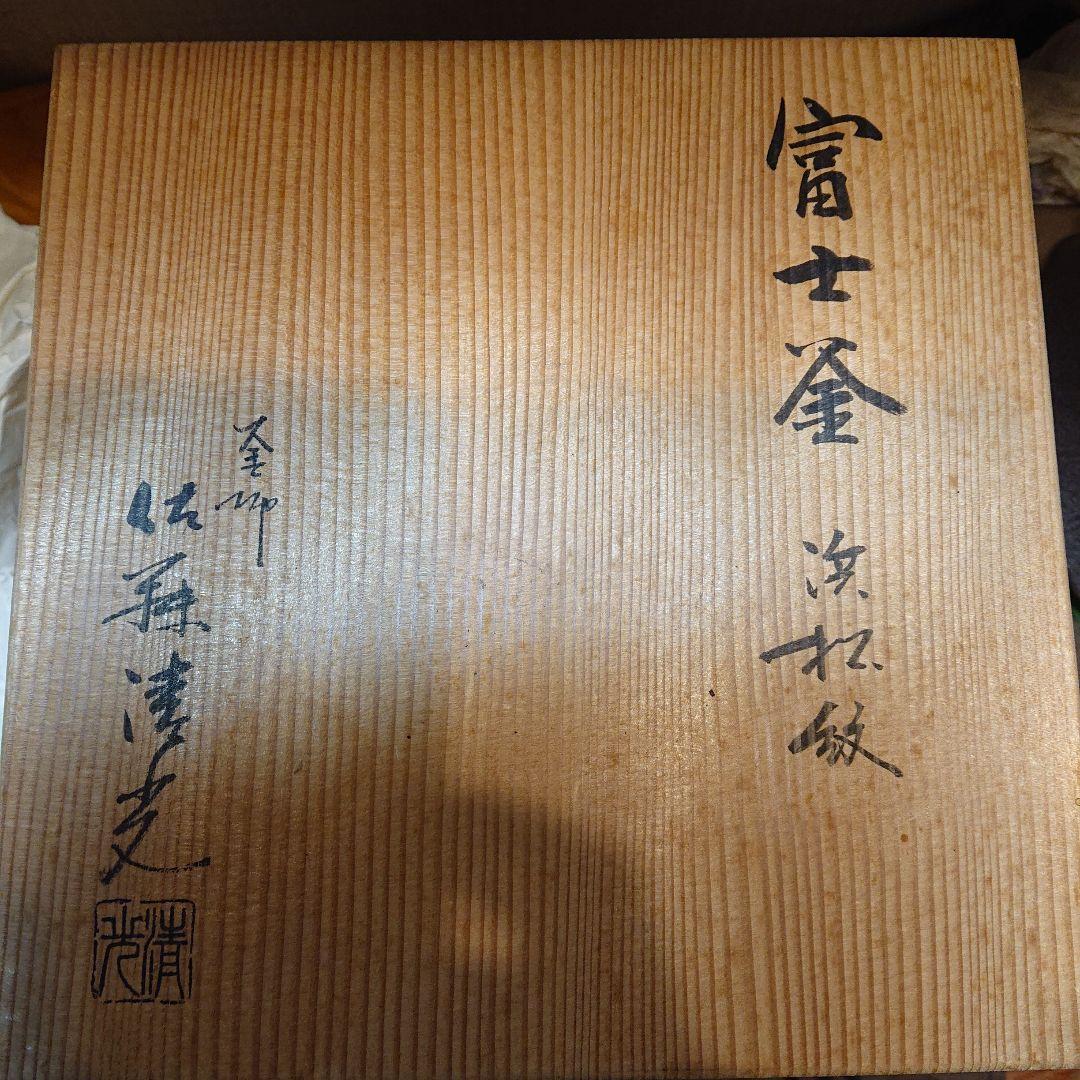 富士釜 浜松紋
釜師
佐藤清光
清光